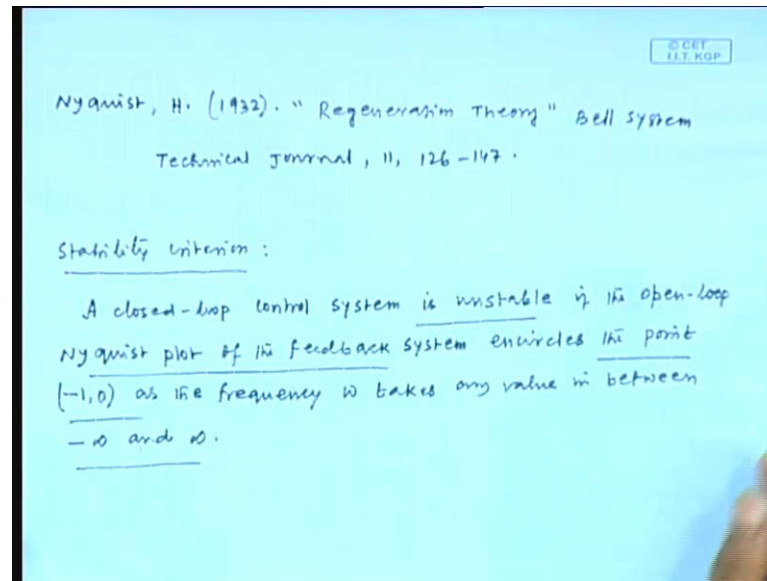 © CET
I.I.T. KGP
Nyquist, H. (1932). "Regeneration Theory" Bell System
Technical Journal, 11, 126-147.
Stability criterion :
A closed-loop control system is unstable if the open-loop
Nyquist plot of the feedback system encircles the point
(-1,0) as the frequency w takes any value in between
-∞ and ∞.